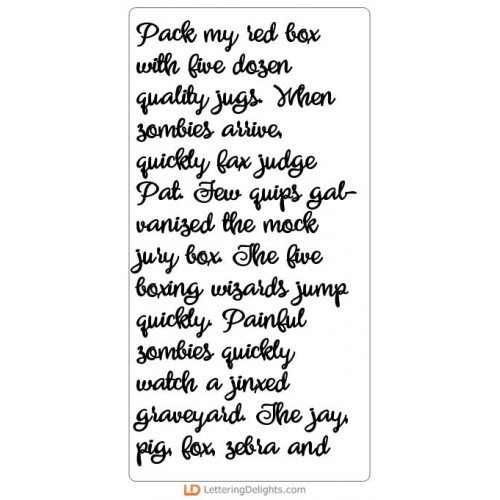 Pack my red box
with five dozen
quality jugs. When
zombies arrive,
quickly fax judge
Pat. Few quips gal-
vanized the mock
jury box. The five
boxing wizards jump
quickly. Painful
zombies quickly
watch a jinxed
graveyard. The jay,
pig, fox, zebra and
LD LetteringDelights.com